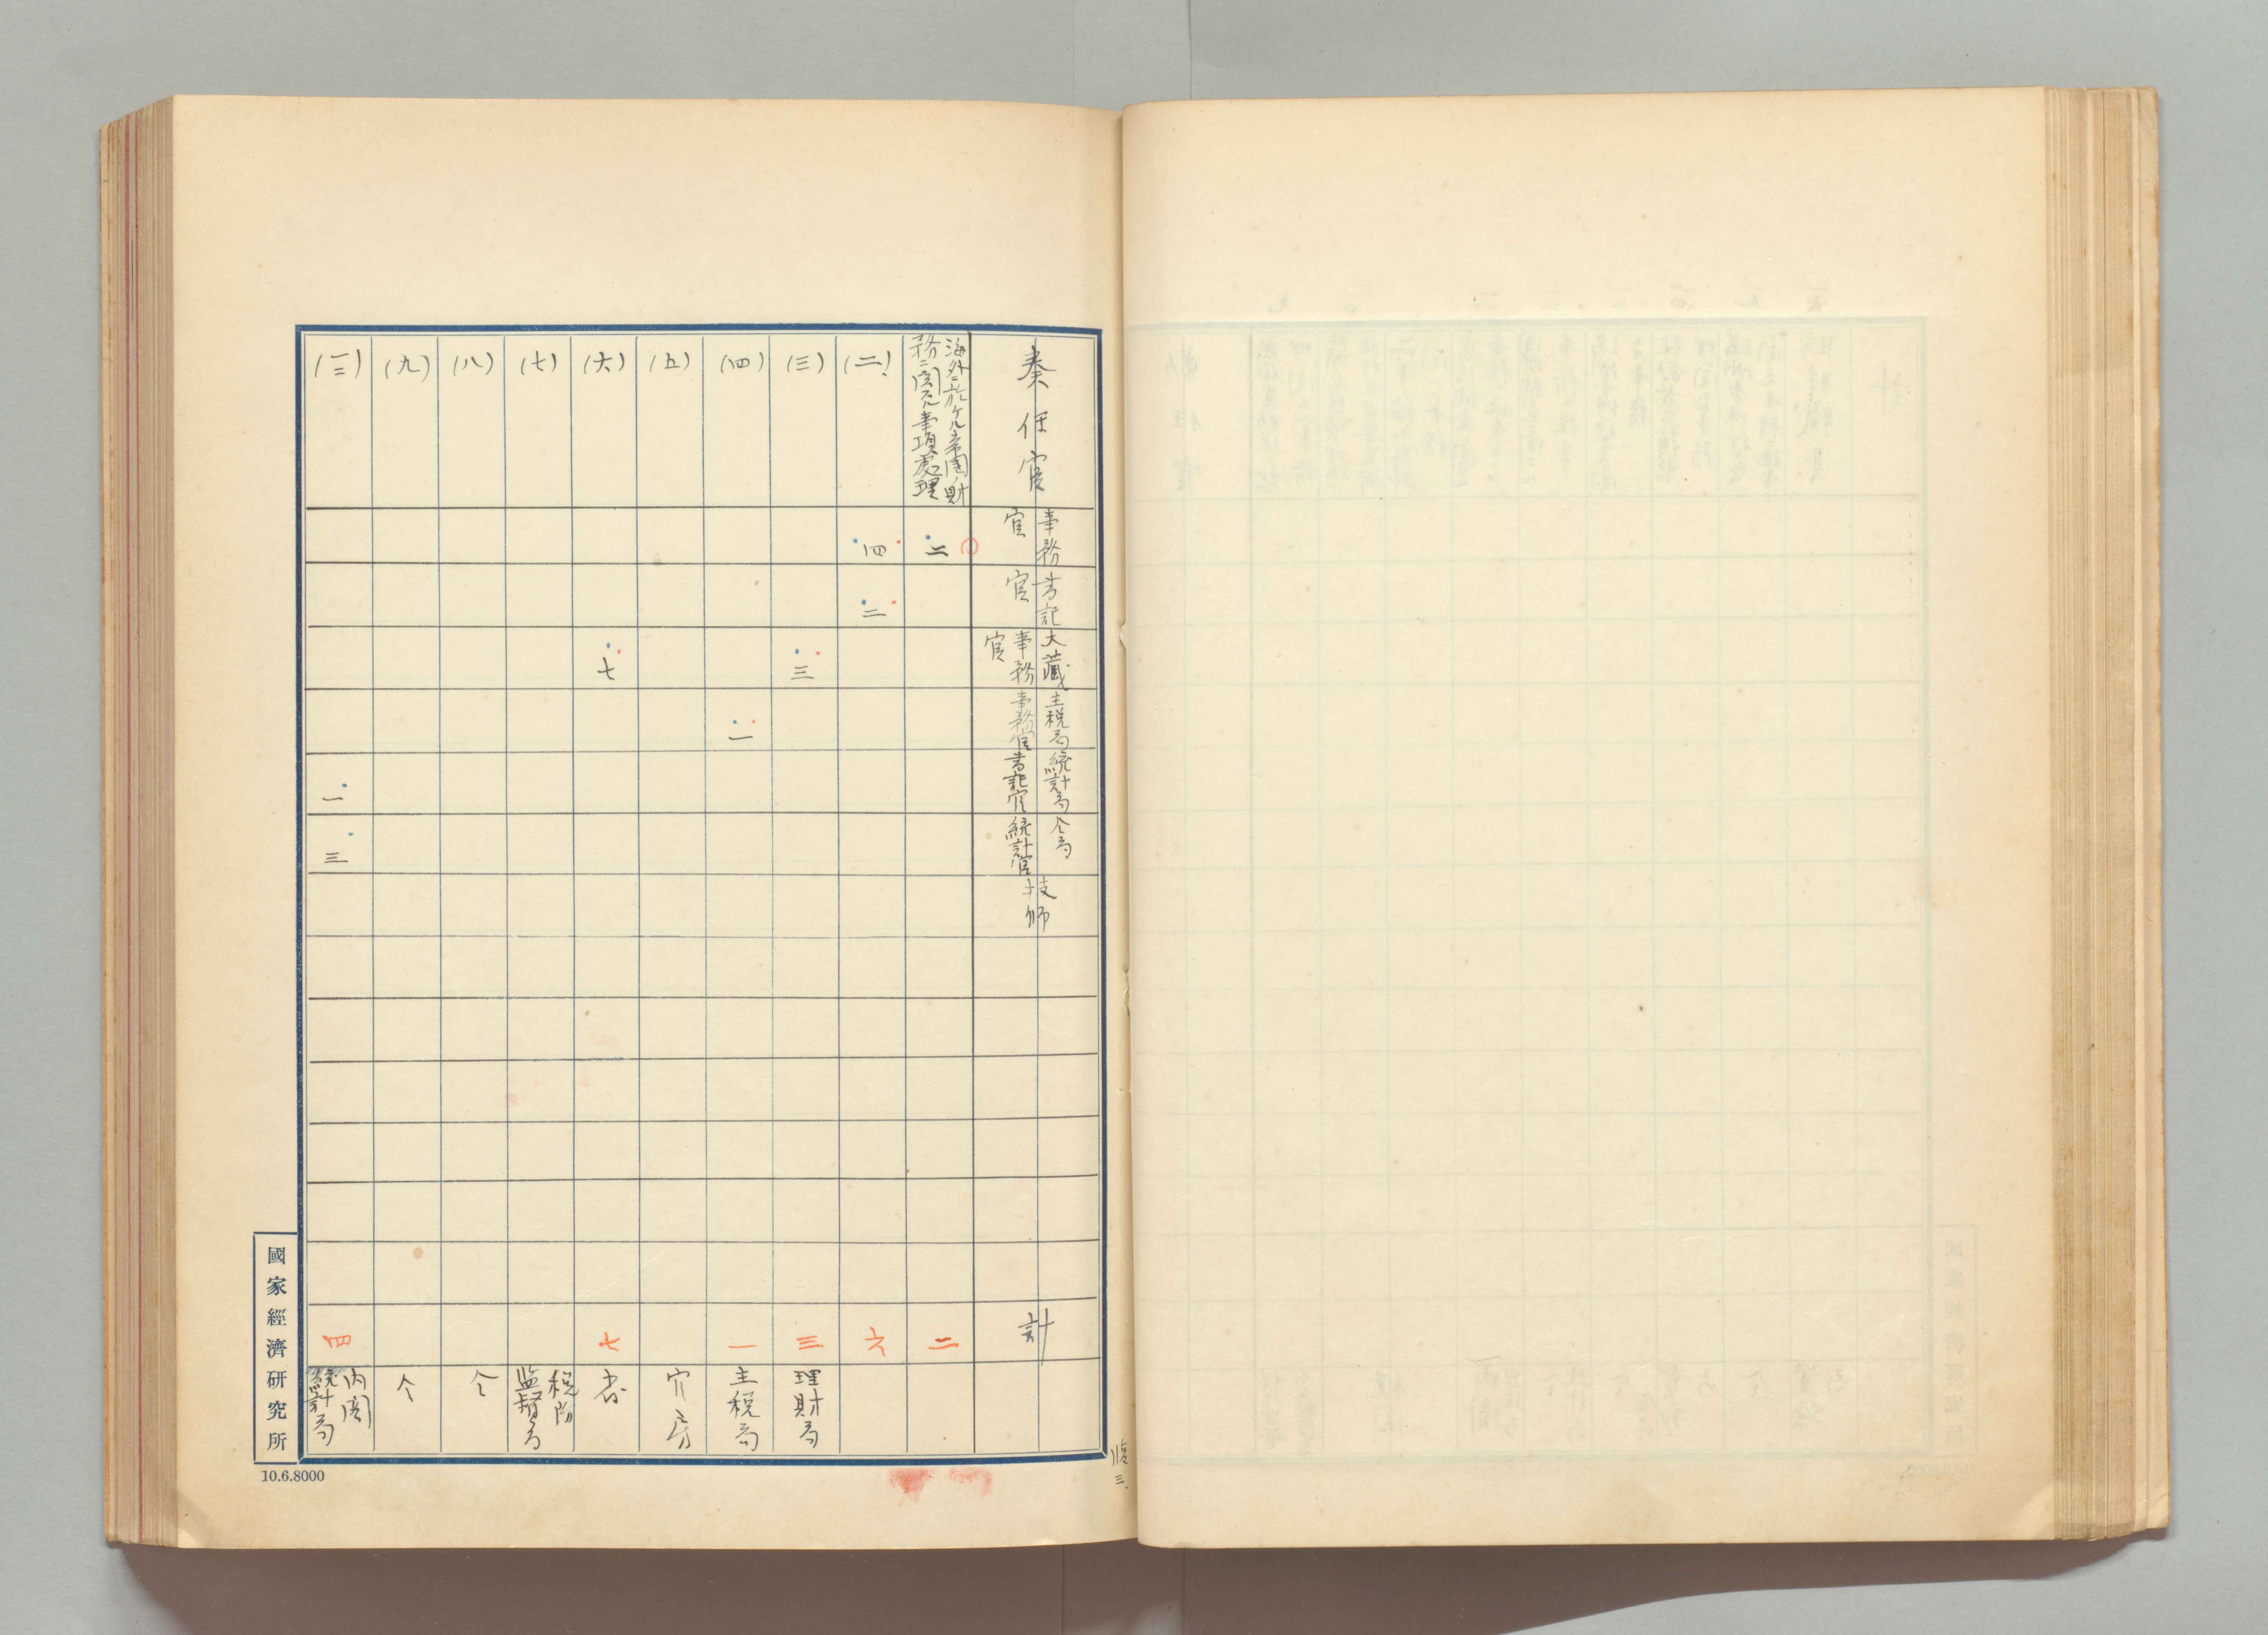 奏任官
事務官
書記官
大藏事務官
主税局事務官
統計局書記官
仝局統計官
技師
計
海外ニ於ケル帝国財
務ニ関スル事項處理
二
二
(二)
四
二
六
(三)
三
三
理財局
(四)
一
一
主税局
(五)
官房
(六)
七
七
(七)
税務
監督局
(八)
仝
(九)
仝
一
三
四
内閣
統計局
國家經濟研究所
10.6.8000